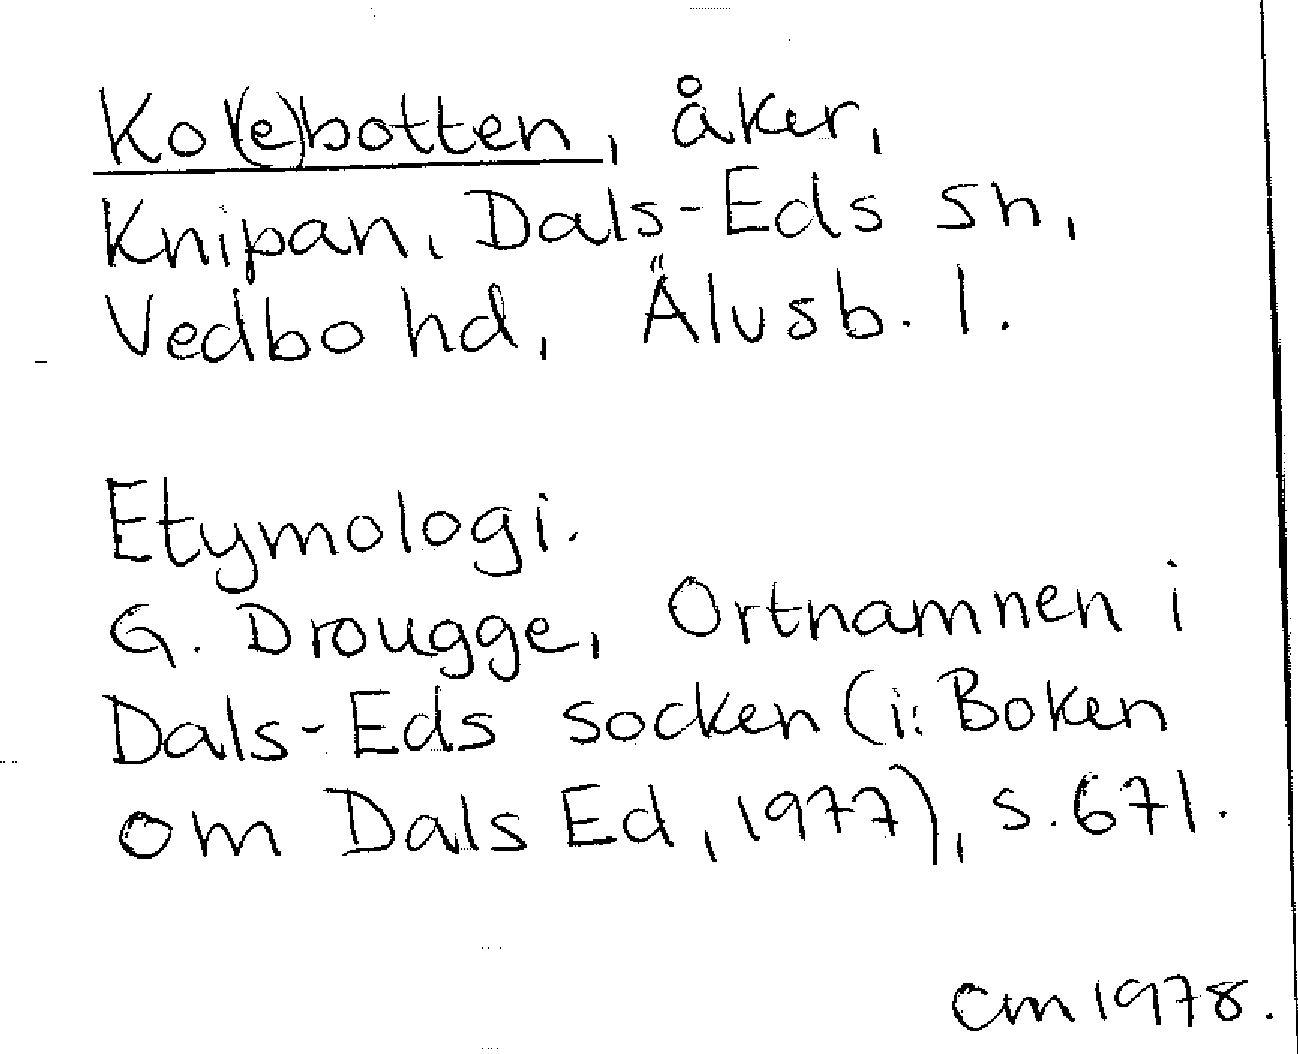 Kol(e)botten, åker,
Knipan, Dals-Eds sn,
Vedbo hd, Älvsb. l.
Etymologi.
G. Drougge, Ortnamnen i
Dals-Eds socken (i: Boken
om Dals Ed, 1977), s. 671.
CM 1978.